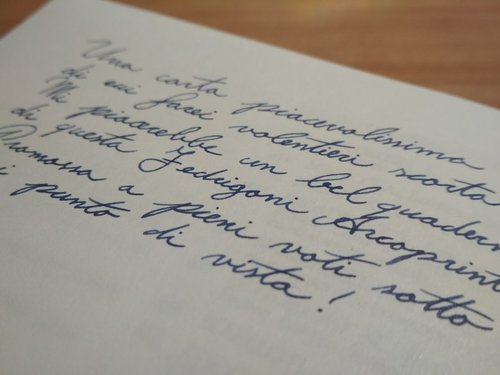 Una carta piacevolissima
di cui farei volentieri scorta
Mi piacerebbe un bel quadern
di questa Fedrigoni Arcoprint
Promossa a pieni voti sotto
i punto di vista!